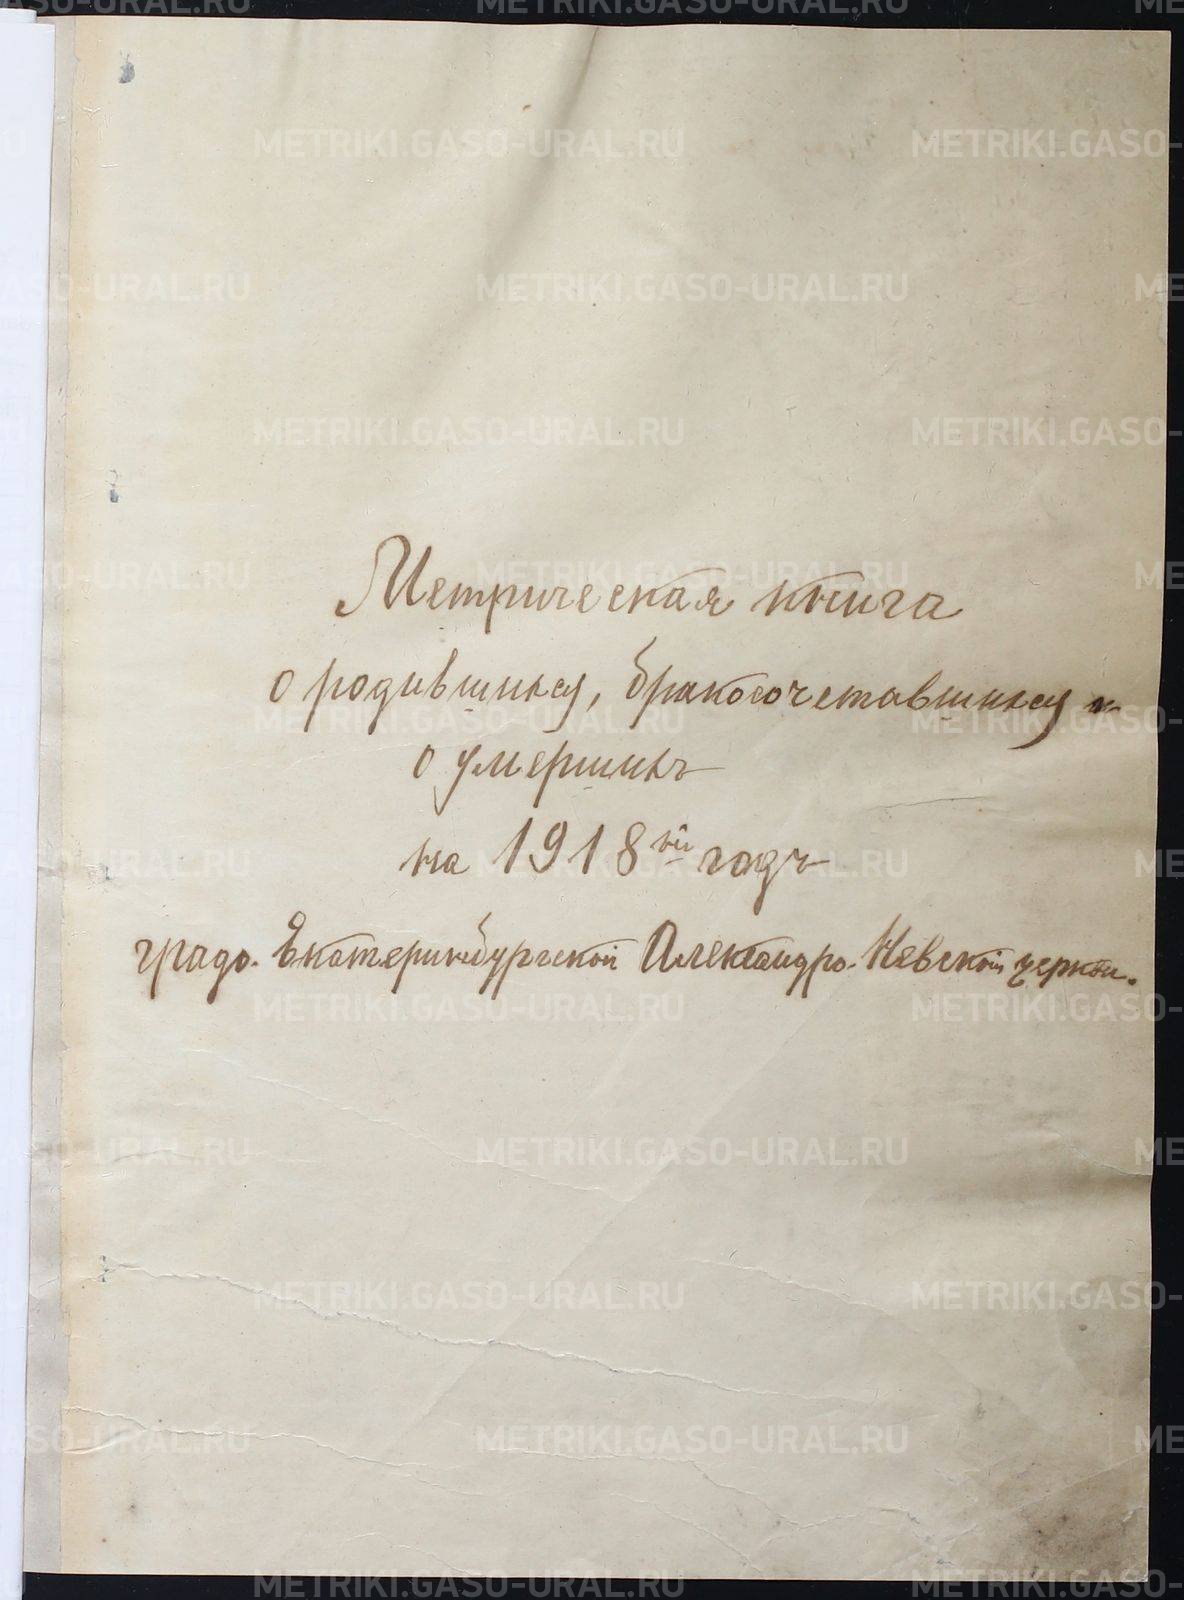 Метрическая книга
о родившихся, бракосочетавшихся и
о умерших
на 1918ый годъ
градо-Екатеринбургской Александро-Невской церкви.
METRIKI.GASO-URAL.RU